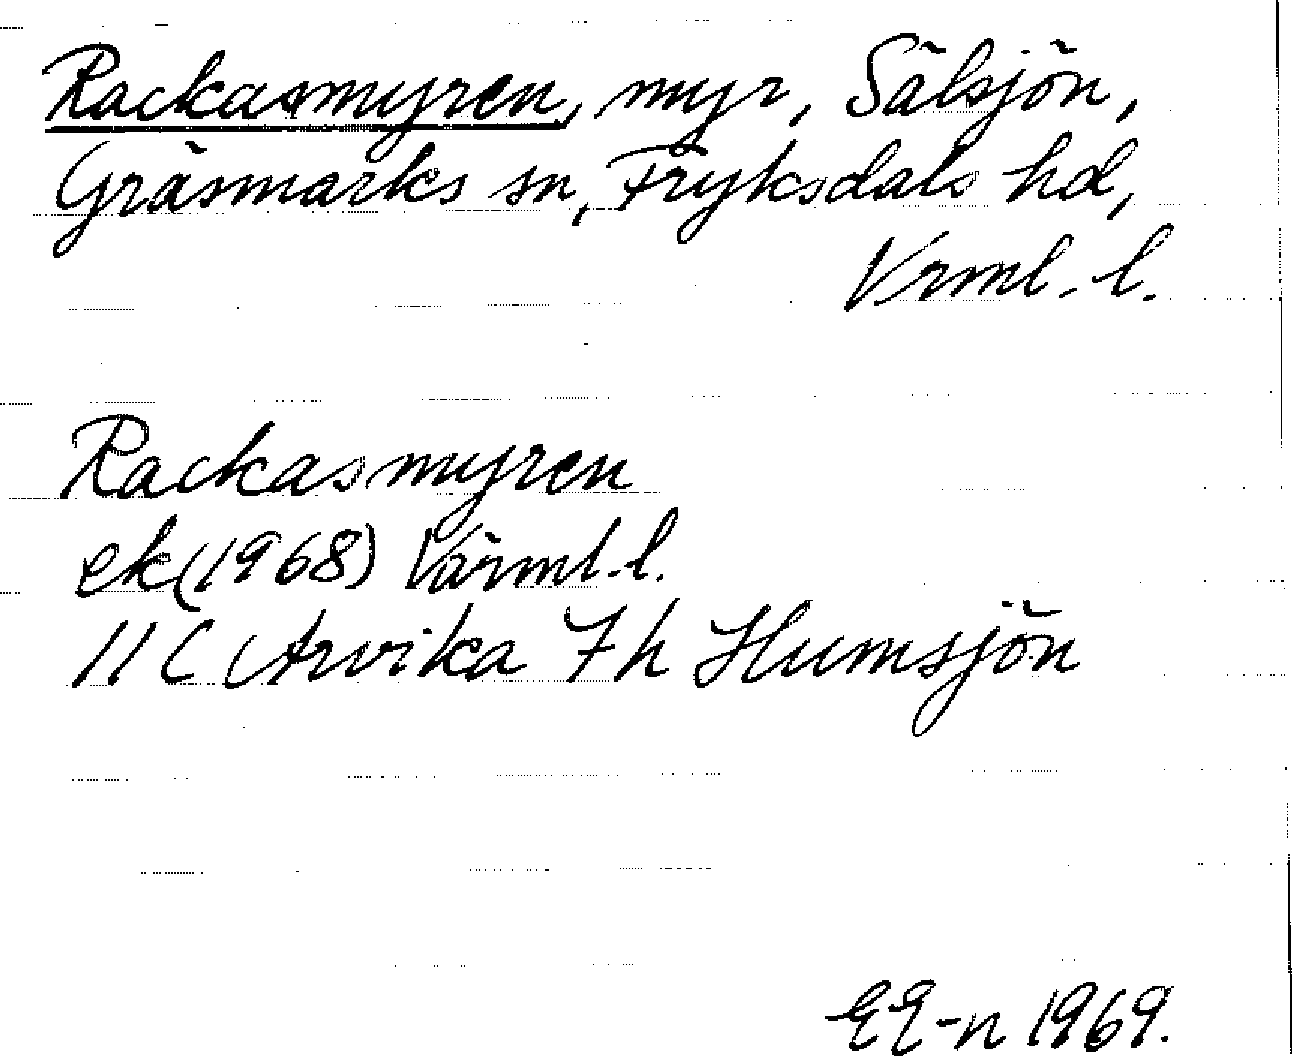 Rackasmyren, myr, Sälsjön,
Gräsmarks sn, Fryksdals hd,
Vrml. l.
Rackasmyren
ek (1968) Värml. l.
11 C Arvika 7 h Humsjön
EE-n 1969.